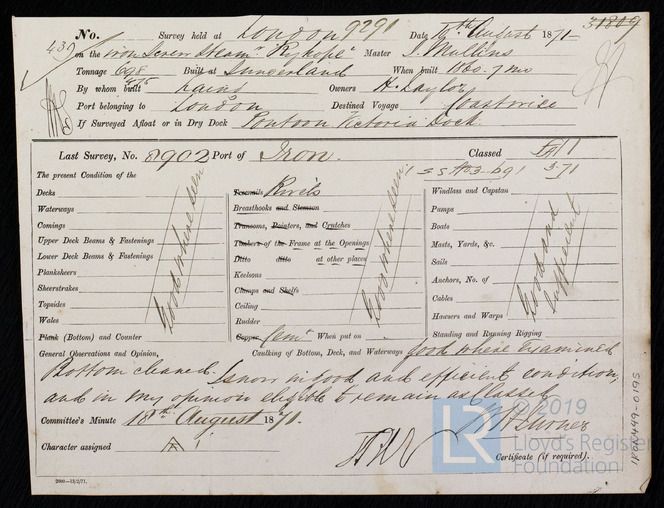 No. Survey held at London 9291 Date 16th August 1871 31809
439 on the iron Screw Steamr "Ryhope" Master J. Mullins
Tonnage 698 Built at Sunderland When built 1860. 7 mo
475
By whom built Rains Owners H. Taylor
Port belonging to London Destined Voyage Coastwise
If Surveyed Afloat or in Dry Dock Pontoon Victoria Dock.
Last Survey, No. 8902 Port of Iron. Classed
S S No 3-69 3.71
The present Condition of the
Decks
Waterways
Comings
Upper Deck Beams & Fastenings
Lower Deck Beams & Fastenings
Planksheers
Sheerstrakes
Topsides
Wales
Plank (Bottom) and Counter
Good where seen
Treenails Rivets
Breasthooks and Stemson
Transoms, Pointers, and Crutches
Timbers of the Frame at the Openings
Ditto ditto at other places
Keelsons
Clamps and Shelfs
Ceiling
Rudder
Copper Cemt When put on
Good where seen
Windlass and Capstan
Pumps
Boats
Masts, Yards, &c.
Sails
Anchors, No. of
Cables
Hawsers and Warps
Standing and Running Rigging
Good and sufficient
General Observations and Opinion, Caulking of Bottom, Deck, and Waterways good where examined
Bottom cleaned. Is now in good and efficient condition,
and in my opinion eligible to remain as Classed
Committee's Minute 18th August 1871.
Character assigned A
Certificate (if required).
2000—13/2/71.
LR © 2019
Lloyd's Register
Foundation
IRON449-0195